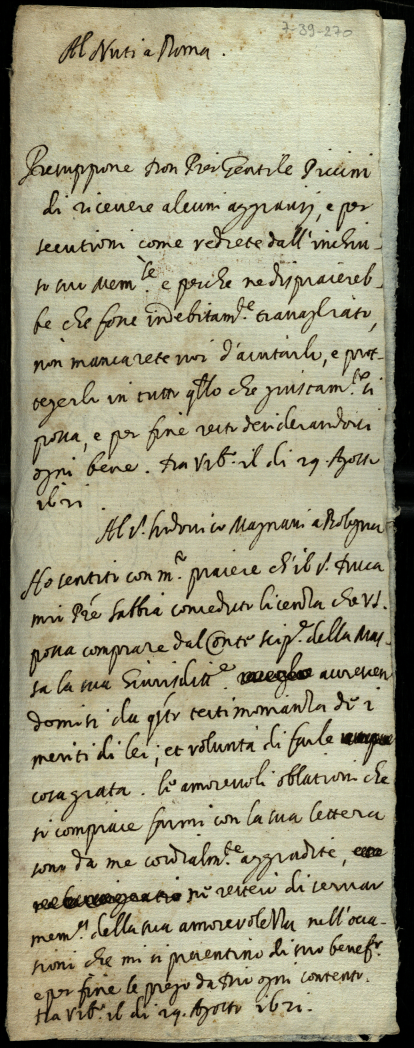 7-39-270
Al Nuti a Roma.
Presuppone Don Pier Gentile Piccini
di riceuere alcuni aggrauij, e per
secutioni come vedrete dall'inchiu-
so suo Mem.le e perche ne dispiacereb-
be che fosse indebitam.te trauagliato,
non mancarete uoi d'aiutarlo, e prot-
tegerlo in tutto q.llo che giustam.te si
possa, e per fine resto desiderandoui
ogni bene. Da Urb.o il di 29 Agosto
1621
Al S.r Lodouico Magnani a Bologna
Ho sentito con m.to piacere ch'il S.r Duca
mio P're habbia conceduto licenza che V.S.
possa comprare dal Conte Scip.e della Mas-
sa la sua Giurisditt.e auueden
domi si da q.sto testimonianza de i
meriti di lei, et uolontà di farle
cosa grata. le amoreuoli oblationi che
si compiace farmi con la sua lettera
sono da me cordialm.te aggradite,
ne resterò di seruar
mem.a della sua amoreuolezza nell'occa-
sioni che mi si presentino di suo benef.o
e per fine le prego da Dio ogni contento.
Da Urb.o il di 29. Agosto 1621.